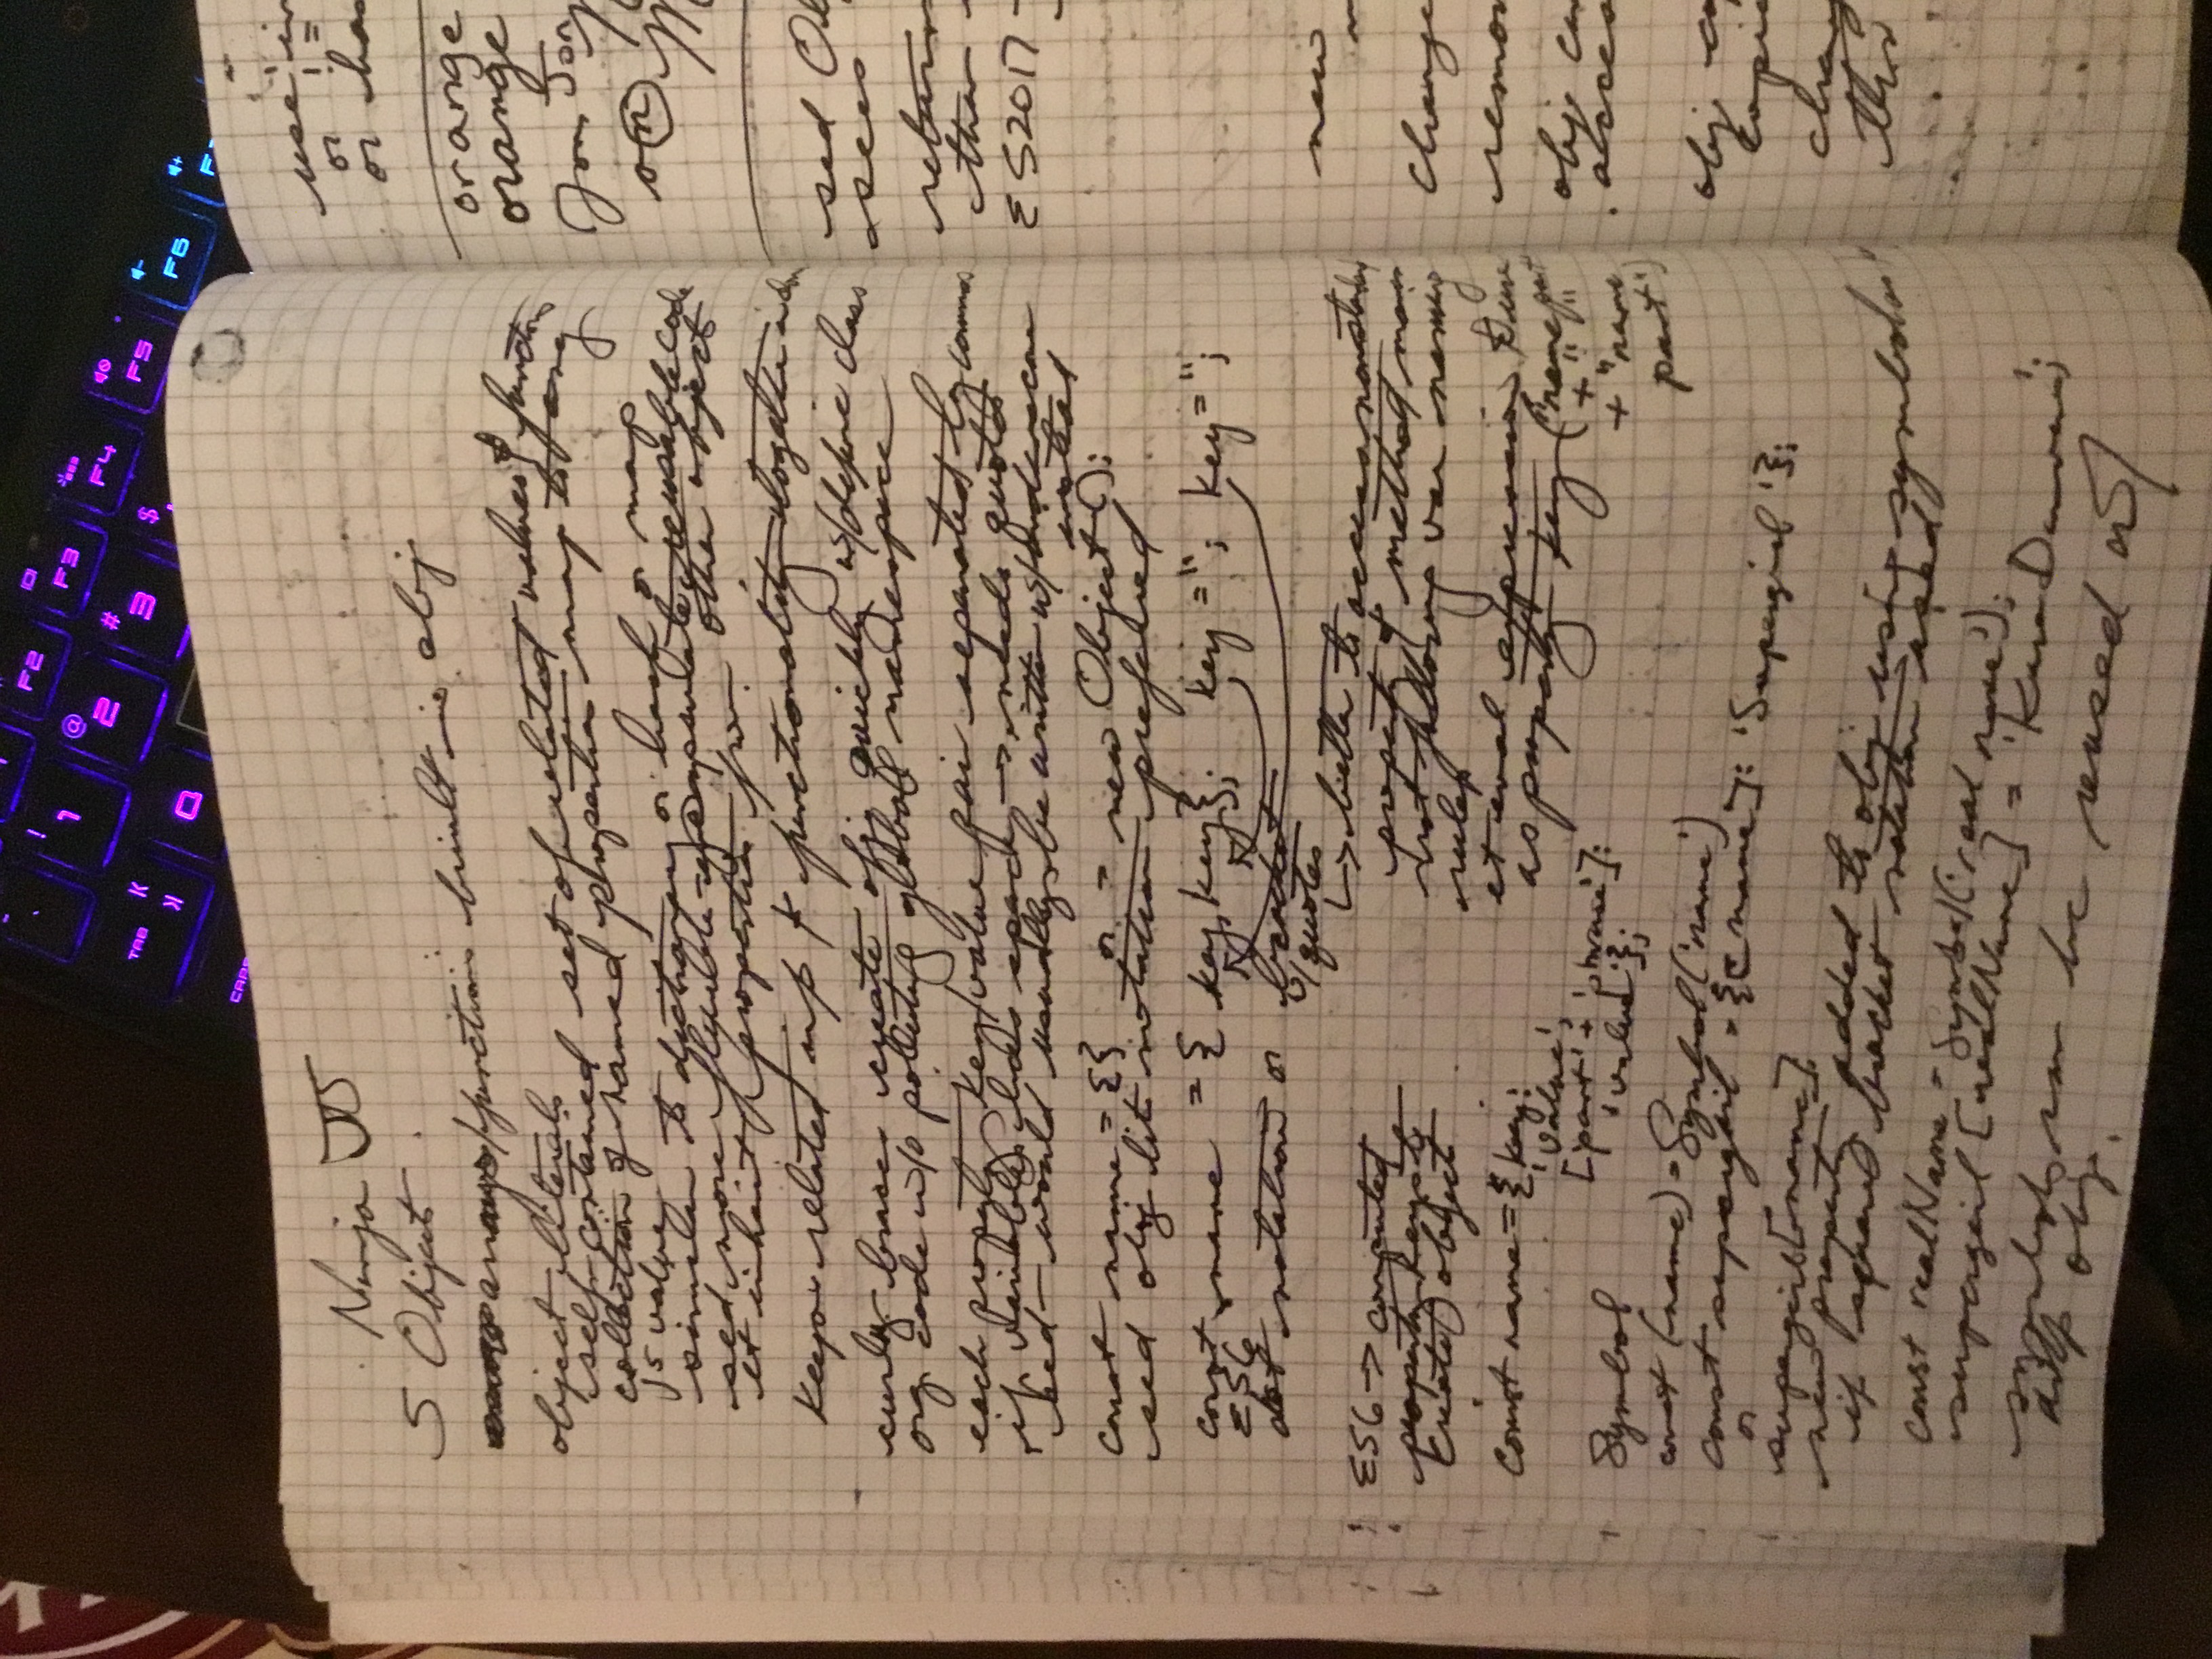 F2
F3
F4
F5
F6
!
1
@
2
#
3
$
TAB
Q
CAPS
Ninja JS
5 Objects
arrays/functions built-in obj
object literals
self-contained set of related values & functions
collection of named properties map to any
JS value
similar to dictionary or hash or map
sed more flexible - encapsulate reusable code
et inherit properties from other object
Keeps related inf & functionality together
curly braces create obj quickly w/ define class
org. code w/o polluting global namespace
each property key/value pair separated by commas
if variable has space -> needs quotes
sed - would usually be written w/ underscore
instead
const name = {} or = new Object();
sed obj lit notation preferred
const name = { key, key}; key = "; key = ";
ES6
dot notation or bracket
w/ quotes
-> better to access nonstandard
property & method names
not following var naming
rules
et eval expression & use
as property key ("name part"
+ " "
+ "name
part")
ES6 -> computed
property keys to
create object
const name = {key:
'value',
['part' + 'phrase']:
'value'};
Symbol
const (name) = Symbol('name')
const supergirl = {[name]: 'Supergirl'};
or
supergirl[name]
new property added to obj using symbols
if square bracket notation used
const realName = Symbol('real name');
supergirl [realName] = 'Kara Danvers';
symbols can be reused w/
diff obj.
use in
or ! =
or has
orange
orange
Jon Jon
on
sed Ob
sees
return
than
ES2017 -
new
change
remov
obj can
acces
obj co
copie
chan
this